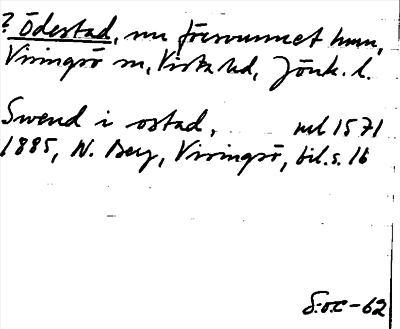 ? Ödestad, nu försvunnet hmn,
Visingsö sn, Vista hd, Jönk. l.
Swend i ostad, ml 1571
1885, N. Berg, Visingsö, bil. s. 16
S:oC-62